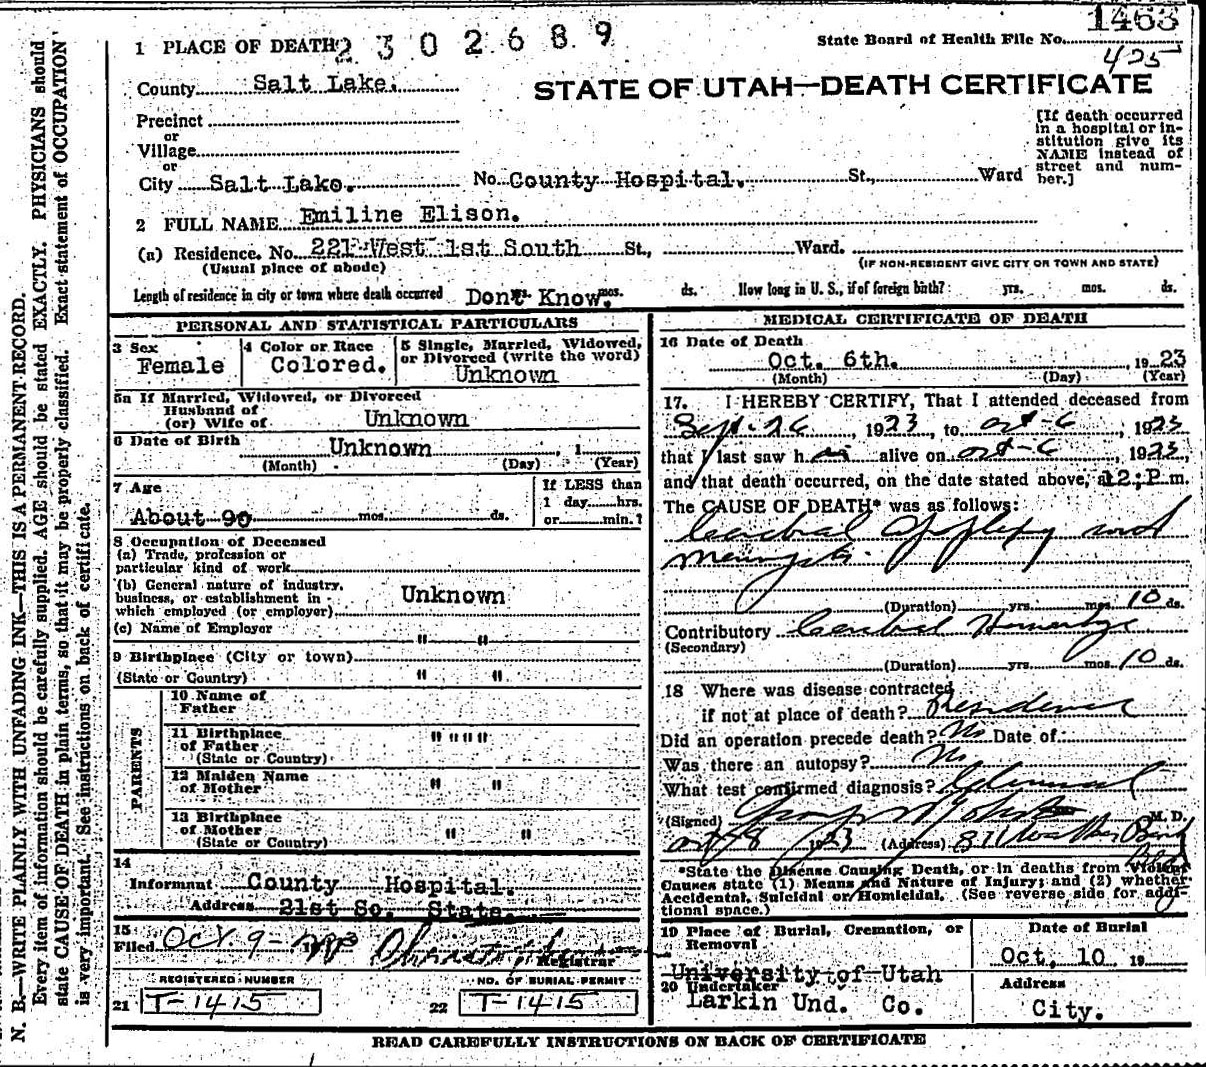 1463
1 PLACE OF DEATH
2302689
State Board of Health File No.
425
County Salt Lake.
STATE OF UTAH—DEATH CERTIFICATE
Precinct
or
Village
or
City Salt Lake. No. County Hospital. St., Ward
[If death occurred
in a hospital or in-
stitution give its
NAME instead of
street and num-
ber.]
2 FULL NAME Emiline Elison.
(a) Residence. No. 221 West 1st South St., Ward.
(Usual place of abode)
(IF NON-RESIDENT GIVE CITY OR TOWN AND STATE)
Length of residence in city or town where death occurred Dont Know. mos. ds. How long in U. S., if of foreign birth? yrs. mos. ds.
PERSONAL AND STATISTICAL PARTICULARS
3 Sex
Female
4 Color or Race
Colored.
5 Single, Married, Widowed,
or Divorced (write the word)
Unknown
5a If Married, Widowed, or Divorced
Husband of
(or) Wife of Unknown
6 Date of Birth Unknown , 1
(Month) (Day) (Year)
7 Age
About 90 mos. ds.
If LESS than
1 day hrs.
or min.?
8 Occupation of Deceased
(a) Trade, profession or
particular kind of work
(b) General nature of industry,
business, or establishment in
which employed (or employer) Unknown
(c) Name of Employer " "
9 Birthplace (City or town)
(State or Country) " "
PARENTS
10 Name of
Father
11 Birthplace
of Father
(State or Country) " " " "
12 Maiden Name
of Mother " "
13 Birthplace
of Mother
(State or Country) " "
14
Informant County Hospital.
Address 21st So. State.
15
Filed Oct 9-
Registrar
REGISTERED NUMBER
21 T-1415
NO. OF BURIAL PERMIT
22 T-1415
MEDICAL CERTIFICATE OF DEATH
16 Date of Death
Oct. 6th. 1923
(Month) (Day) (Year)
17. I HEREBY CERTIFY, That I attended deceased from
Sept. 26, 1923, to Oct-6, 1923
that I last saw h alive on Oct-6, 1923,
and that death occurred, on the date stated above, at 12; P.m.
The CAUSE OF DEATH* was as follows:
Cerebral Apoplexy and
(Duration) yrs. mos. 10 ds.
Contributory Cerebral Hemorrhage
(Secondary)
(Duration) yrs. mos. 10 ds.
18 Where was disease contracted
if not at place of death? Residence
Did an operation precede death? No Date of
Was there an autopsy? No
What test confirmed diagnosis? Clinical
(Signed) M. D.
Oct 8 1923 (Address) 811 Walker Bank
*State the Disease Causing Death, or in deaths from Violent
Causes state (1) Means and Nature of Injury; and (2) whether
Accidental, Suicidal or Homicidal. (See reverse side for addi-
tional space.)
19 Place of Burial, Cremation, or
Removal
University of Utah
Date of Burial
Oct, 10 19
20 Undertaker
Larkin Und. Co.
Address
City.
READ CAREFULLY INSTRUCTIONS ON BACK OF CERTIFICATE
N. B.—WRITE PLAINLY WITH UNFADING INK—THIS IS A PERMANENT RECORD.
Every item of information should be carefully supplied. AGE should be stated EXACTLY. PHYSICIANS should
state CAUSE OF DEATH in plain terms, so that it may be properly classified. Exact statement of OCCUPATION
is very important. See instructions on back of certificate.